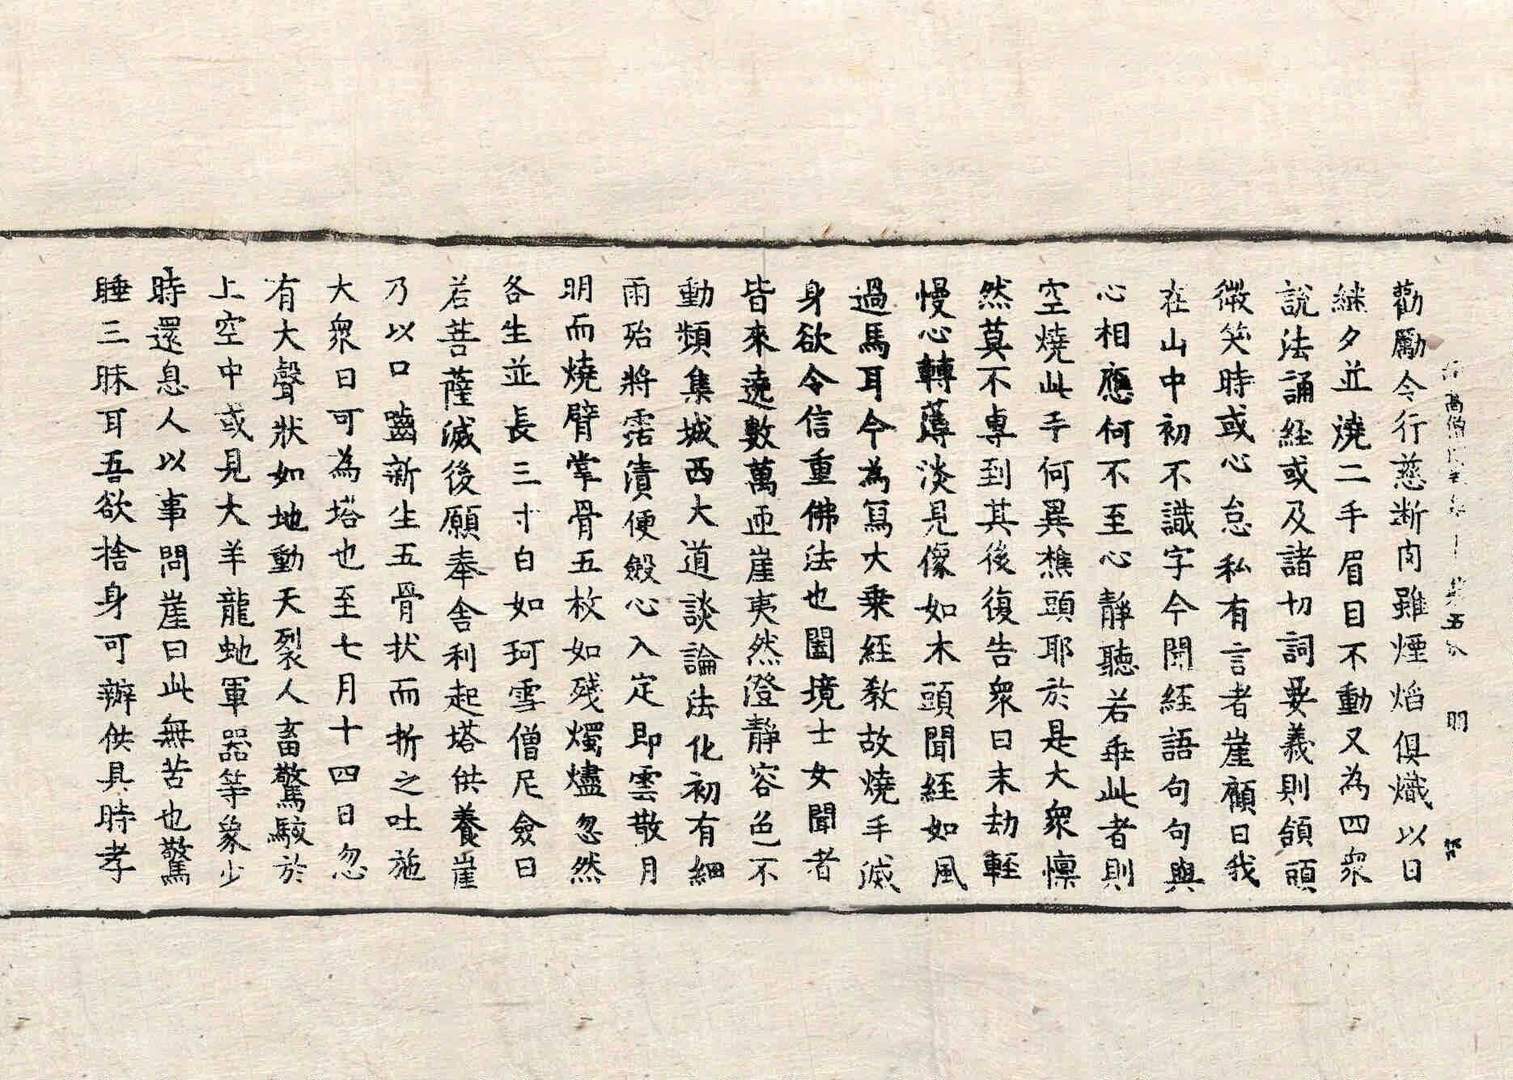 勸勵令行慈断肉雖煙焰俱熾以日
継夕並燒二手眉目不動又為四衆
說法誦経或及諸切詞要義則頷頭
微笑時或心怠私有言者崖顧曰我
在山中初不識字今聞経語句句與
心相應何不至心靜聽若乖此者則
空燒此手何異樵頭耶於是大衆懍
然莫不專到其後復告衆曰末劫輕
慢心轉薄淡見像如木頭聞経如風
過馬耳今為寫大乗経教故燒手滅
身欲令信重佛法也闔境士女聞者
皆來遶數萬迊崖夷然澄靜容色不
動頻集城西大道談論法化初有細
雨殆將霑漬便斂心入定即雲散月
明而燒臂掌骨五枚如殘燭燼忽然
各生並長三寸白如珂雪僧尼僉曰
若菩薩滅後願奉舎利起塔供養崖
乃以口齧新生五骨状而折之吐施
大衆曰可為塔也至七月十四日忽
有大聲狀如地動天裂人畜驚駭於
上空中或見大羊龍虵軍器等象少
時還息人以事問崖曰此無苦也驚
睡三昧耳吾欲捨身可辦供具時孝